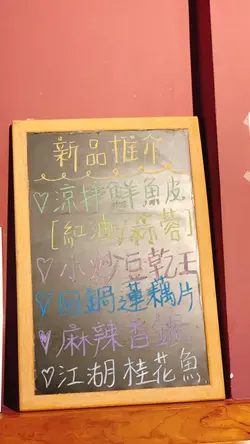 新品推介
♡涼拌鮮魚皮
[紅油/蒜蓉]
♡小炒豆乾王
♡回鍋蓮藕片
♡麻辣香鍋
♡江湖桂花魚